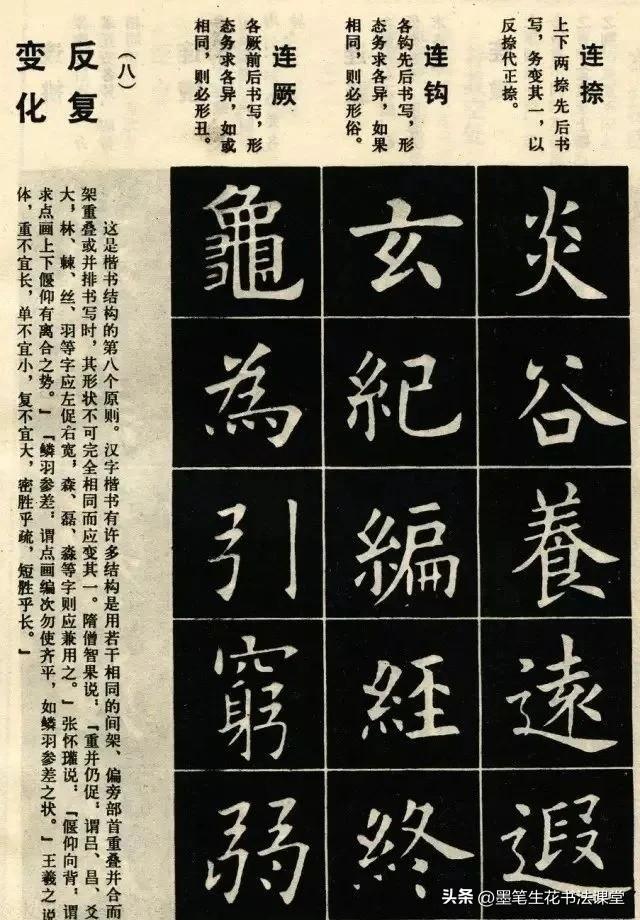 连捺
上下两捺先后书
写，务变其一，以
反捺代正捺。
炎谷養遠遐
连钩
各钩先后书写，形
态务求各异，如果
相同，则必形俗。
玄紀編經終
连厥
各厥前后书写，形
态务求各异，如或
相同，则必形丑。
龜為引窮弱
（八）
反复
变化
这是楷书结构的第八个原则。汉字楷书有许多结构是用若干相同的间架、偏旁部首重叠并合而
架重叠或并排书写时，其形状不可完全相同而应变其一。隋僧智果说：『重并仍促，谓吕、昌、爻
大，林、棘、丝、羽等字应左促右宽，森、磊、淼等字则应兼用之。』张怀瓘说：『偃仰向背，谓
求点画上下偃仰有离合之势。』『鳞羽参差，谓点画编次勿使齐平，如鳞羽参差之状。』王羲之说
体，重不宜长，单不宜小，复不宜大，密胜乎疏，短胜乎长。』
头条 @墨笔生花书法课堂